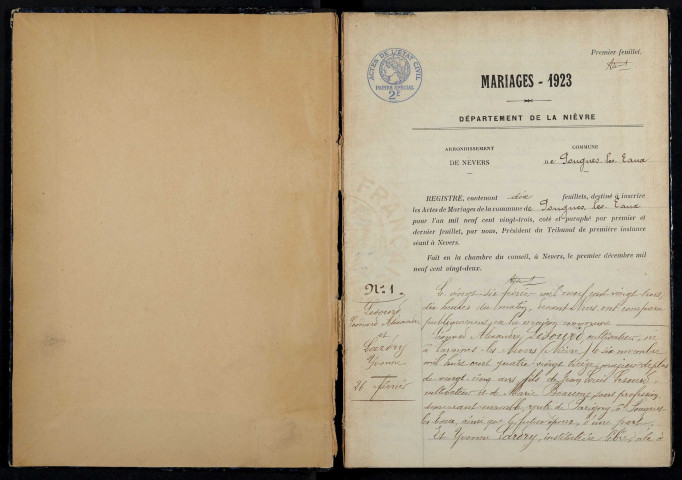 Premier feuillet.
ACTES DE L'ETAT CIVIL
PAPIER SPECIAL
2F
MARIAGES - 1923
DÉPARTEMENT DE LA NIÈVRE
ARRONDISSEMENT
DE NEVERS
COMMUNE
DE Pougues les Eaux
REGISTRE, contenant dix feuillets, destiné à inscrire
les Actes de Mariages de la commune de Pougues les Eaux
pour l'an mil neuf cent vingt-trois, coté et paraphé par premier et
dernier feuillet, par nous, Président du Tribunal de première instance
séant à Nevers.
Fait en la chambre du conseil, à Nevers, le premier décembre mil
neuf cent vingt-deux.
N° 1
Léonard Alexandre
et
Yvonne
26 Février
Le vingt-six février mil neuf cent vingt trois,
dix heures du matin, devant nous ont comparu
publiquement en la maison commune
Léonard Alexandre, cultivateur, né
à Varennes-les-Nevers (Nièvre) le six novembre
mil huit cent quatre-vingt treize, majeur de plus
de vingt cinq ans, fils de Jean Louis
cultivateur et de Marie sans profession,
demeurant ensemble, route de Parigny, à Pougues-
les-Eaux, ainsi que le futur époux, d'une part.
Et Yvonne institutrice libre, née à